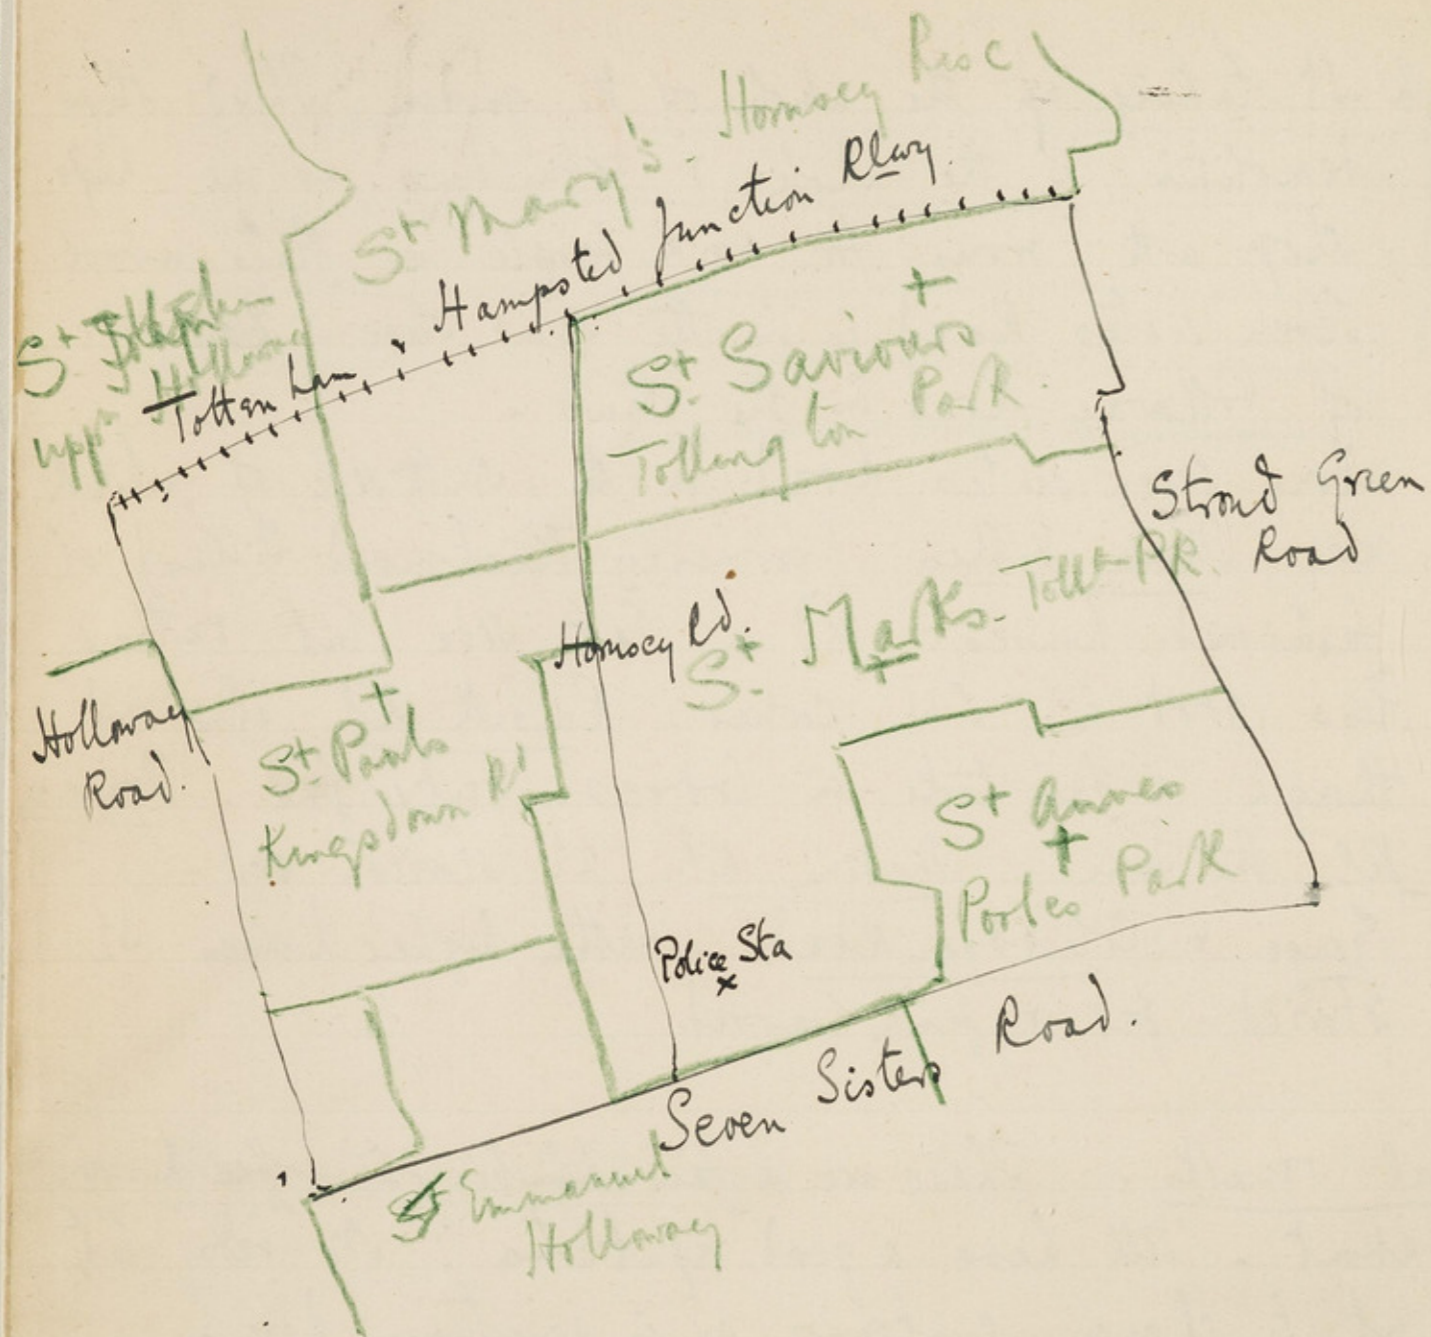 St Mary's - Hornsey Rise
Tottenham & Hampsted Junction Rlwy.
St
upp Holloway
St Saviours
Tollington Park
Stroud Green
Road
Hornsey Rd.
St Marks - Tollt PK.
Holloway
Road.
St Pauls
Kingsdown Rd
St Annes
Pooles Park
Police Sta
Seven Sisters Road.
Emmanuel
Holloway